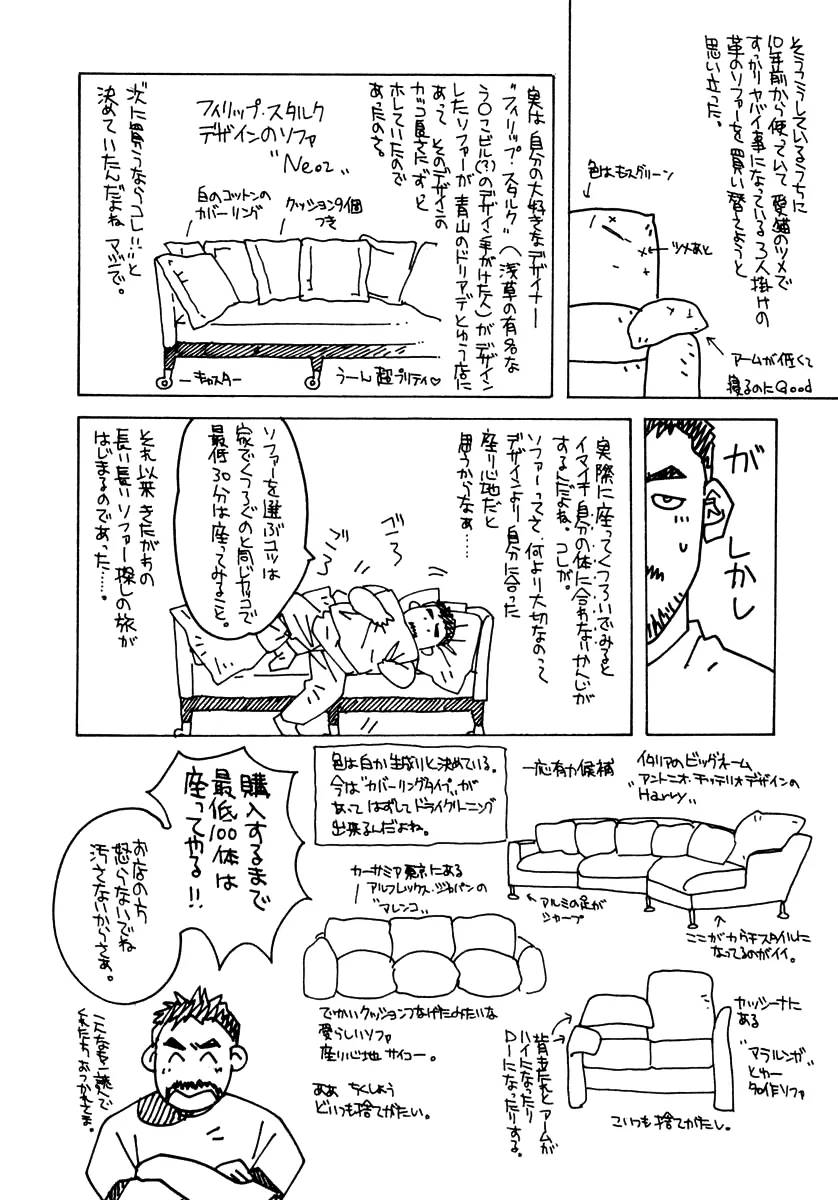 そうこうしているうちに
10年前から使っていて愛猫のツメで
すっかりヤバイ事になっている3人掛けの
革のソファーを買い替えようと
思い立った。
色はモスグリーン
ツメあと
アームが低くて
寝るのにGood
実は自分の大好きなデザイナー
"フィリップ・スタルク"（浅草の有名な
う○こビル(?)のデザイン手がけた人）がデザイン
したソファーが青山のドリアデとゆう店に
あって そのデザインの
カッコ良さにずっと
ホレていたので
あったのさ。
フィリップ・スタルク
デザインのソファ
"Neoz"
白のコットンの
カバーリング
クッション9個
つき
キャスター
うーん超プリティ♡
"次に買うならコレ!!"と
決めていたんだよね マジで。
が
しかし
実際に座ってくつろいでみると
イマイチ自分の体に合わないかんじが
するんだよね。コレが。
ソファーってさ、何より大切なのって
デザインより自分に合った
座り心地だと
思うからなぁ……
ゴロ
ゴロ
ソファーを選ぶコツは
家でくつろぐのと同じカッコで
最低30分は座ってみること。
それ以来きたがわの
長い長いソファー探しの旅が
はじまるのであった……。
購入するまで
最低100体は
座ってやる!!
お店の方
怒らないでね
汚さないからさぁ。
こんなもん読んで
くれた方おつかれさま。
色は白か生成りと決めている。
今は"カバーリングタイプ"が
あってはずしてドライクリーニング
出来るんだよね。
一応有力候補
イタリアのビッグネーム
アントニオ・チッテリオデザインの
"Harry"
アルミの足が
シャープ
ここがカウチスタイルに
なってるのがイイ。
カーサミア東京にある
アルフレックス・ジャパンの
"マレンコ"
でかいクッションつなげたみたいな
愛らしいソファ
座り心地サイコー。
ああ ちくしょう
どいつも捨てがたい。
背もたれとアームが
ハイになったり
ローになったりする。
カッシーナに
ある
"マラルンガ"
とゆー
名作ソファ
こいつも捨てがたし。